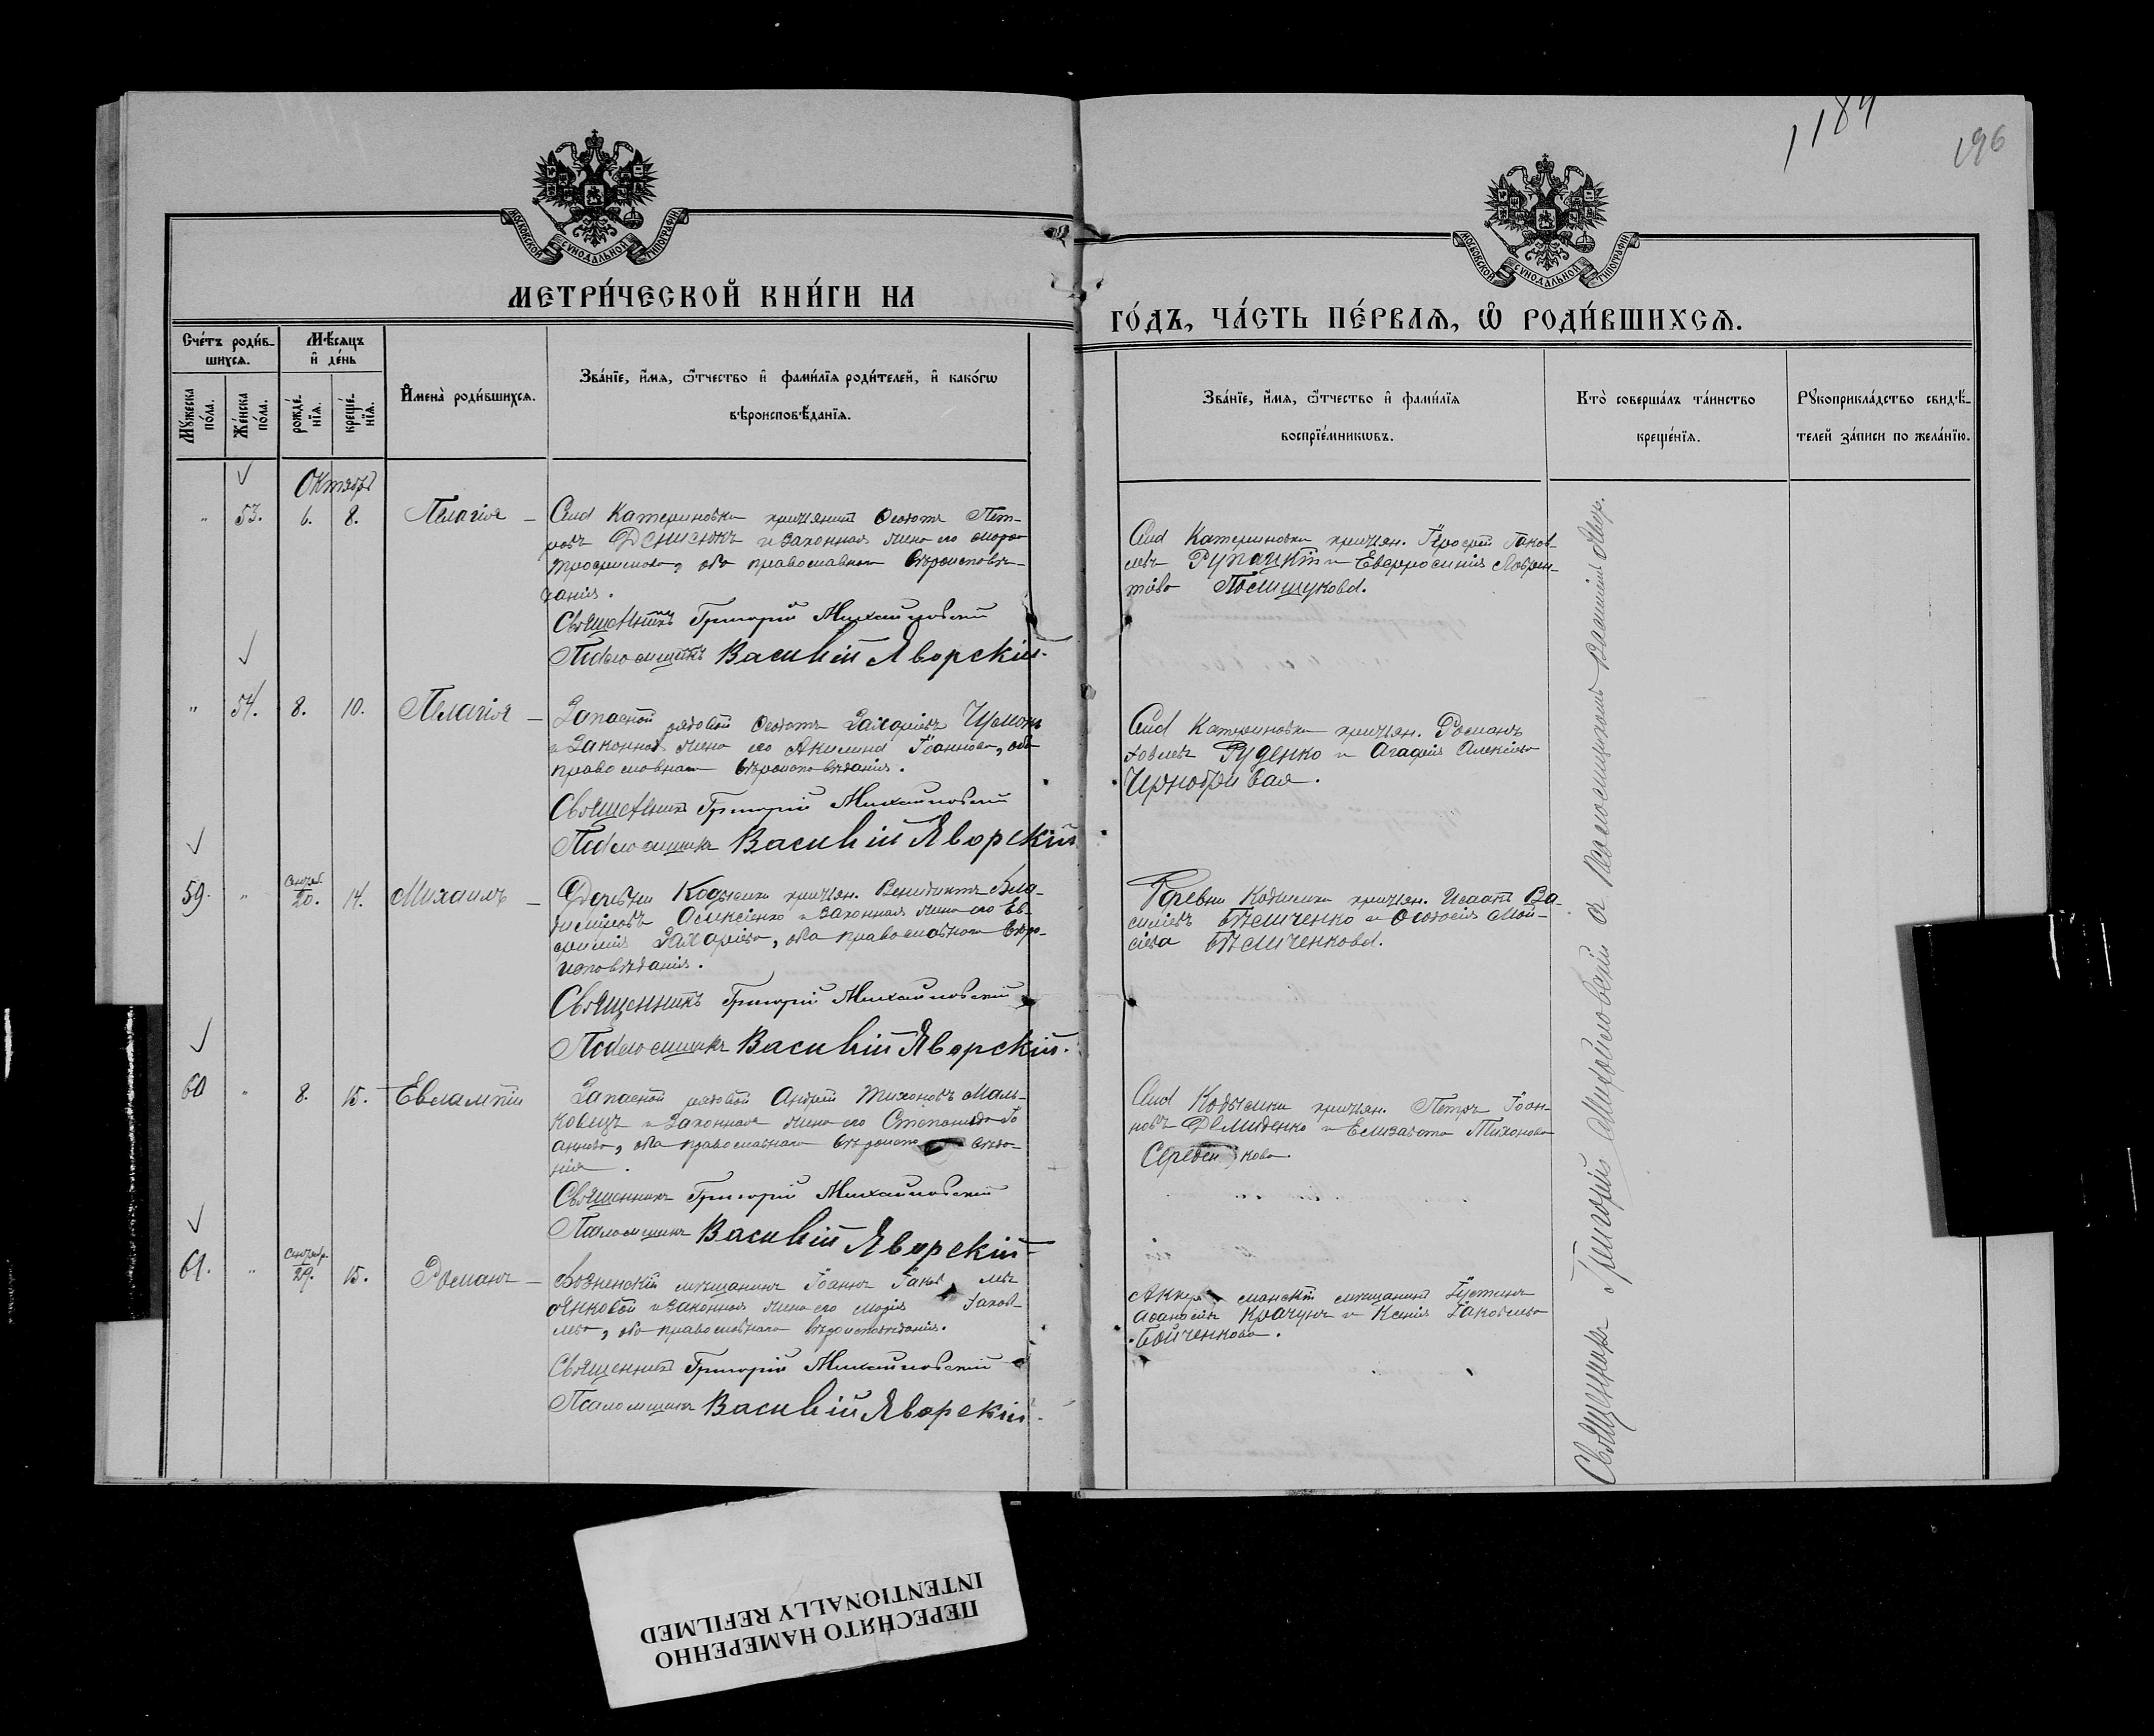 1184
196
МОСКОВСКОЙ СѴНОДАЛЬНОЙ ТИПОГРАФІИ
МОСКОВСКОЙ СѴНОДАЛЬНОЙ ТИПОГРАФІИ
МЕТРИ́ЧЕСКОЙ КНИ́ГИ НА
ГО́ДЪ, ЧА́СТЬ ПЕ́РВАѦ, Ѽ РОДИ́ВШИХСѦ.
Сче́тъ роди́в-
шихсѧ.
Мѣ́сяцъ
и҆ де́нь
Мꙋжеска по́ла.
Же́нска по́ла.
рожде́-
нїѧ.
креще́-
нїѧ.
И҆мена̀ роди́вшихсѧ.
Зва́нїе, и҆́мѧ, ѻ҆́тчество и҆ фами́лїѧ роди́телей, и҆ како́гѡ
вѣроисповѣ́данїѧ.
Зва́нїе, и҆́мѧ, ѻ҆́тчество и҆ фами́лїѧ
воспрїе́мникѡвъ.
Кто̀ соверша́лъ та́инство
креще́нїѧ.
Рꙋкоприкла́дство свидѣ́-
телей за́писи по жела́нїю.
Октябрь
" 53. 6. 8. Пелагія –
Села Катериновки крестьянинъ Ѳеодотъ Пет-
ровъ Денисюкъ и законная жена его
Трофимова, оба православнаго вѣроисповѣ-
данія.
Священникъ Григорій Михайловскій
Псаломщикъ Василій Яворскій.
Села Катериновки крестьян. Іаков-
левъ Рупацкій и Евфросинія Лаврен-
тіева Полищукова.
" 54. 8. 10. Пелагія –
Запасной рядовой Ѳеодотъ Захаріевъ
и законная жена его Акилина Іоаннова, оба
православнаго вѣроисповѣданія.
Священникъ Григорій Михайловскій
Псаломщикъ Василій Яворскій
Села Катериновки крестьян. Романъ
Руденко и Агафія Алексіева
Чернобривая.
59. " Сентяб. 20. 14. Михаилъ –
Деревни Кодымки крестьян. Венидиктъ
Олексіенко и законная жена его Ев-
фимія Захаріева, оба православнаго вѣро-
исповѣданія.
Священникъ Григорій Михайловскій
Псаломщикъ Василій Яворскій.
Деревни Кодымки крестьян. Исаакъ Ва-
силіевъ Бѣличенко и Ѳеодосія Мои-
сіева Бѣличенкова.
60 " 8. 15. Евлампій
Запасной рядовой Андрей Тихоновъ Маль-
ковицъ и законная жена его Стефанида Іо
аннова, оба православнаго вѣроиспо вѣда-
нія.
Священникъ Григорій Михайловскій
Псаломщикъ Василій Яворскій
Села Кодымки крестьян. Петръ Іоан-
новъ Демиденко и Елизавета Тихонова
61. " Сентябр. 29. 15. Романъ –
Вознесенскій мѣщанинъ Іоаннъ Іаков левъ
Янковой и законная жена его Марія Іаков-
лева, оба православнаго вѣроисповѣданія.
Священникъ Григорій Михайловскій
Псаломщикъ Василій Яворскій.
Аккер манскій мѣщанинъ Іустинъ
Аѳанасіевъ Крачунъ и Ксенія Іаковлева
Бойченкова.
Священникъ Григорій Михайловскій съ псаломщикомъ Василіемъ Явор.
ПЕРЕСНЯТО НАМЕРЕННО
INTENTIONALLY REFILMED